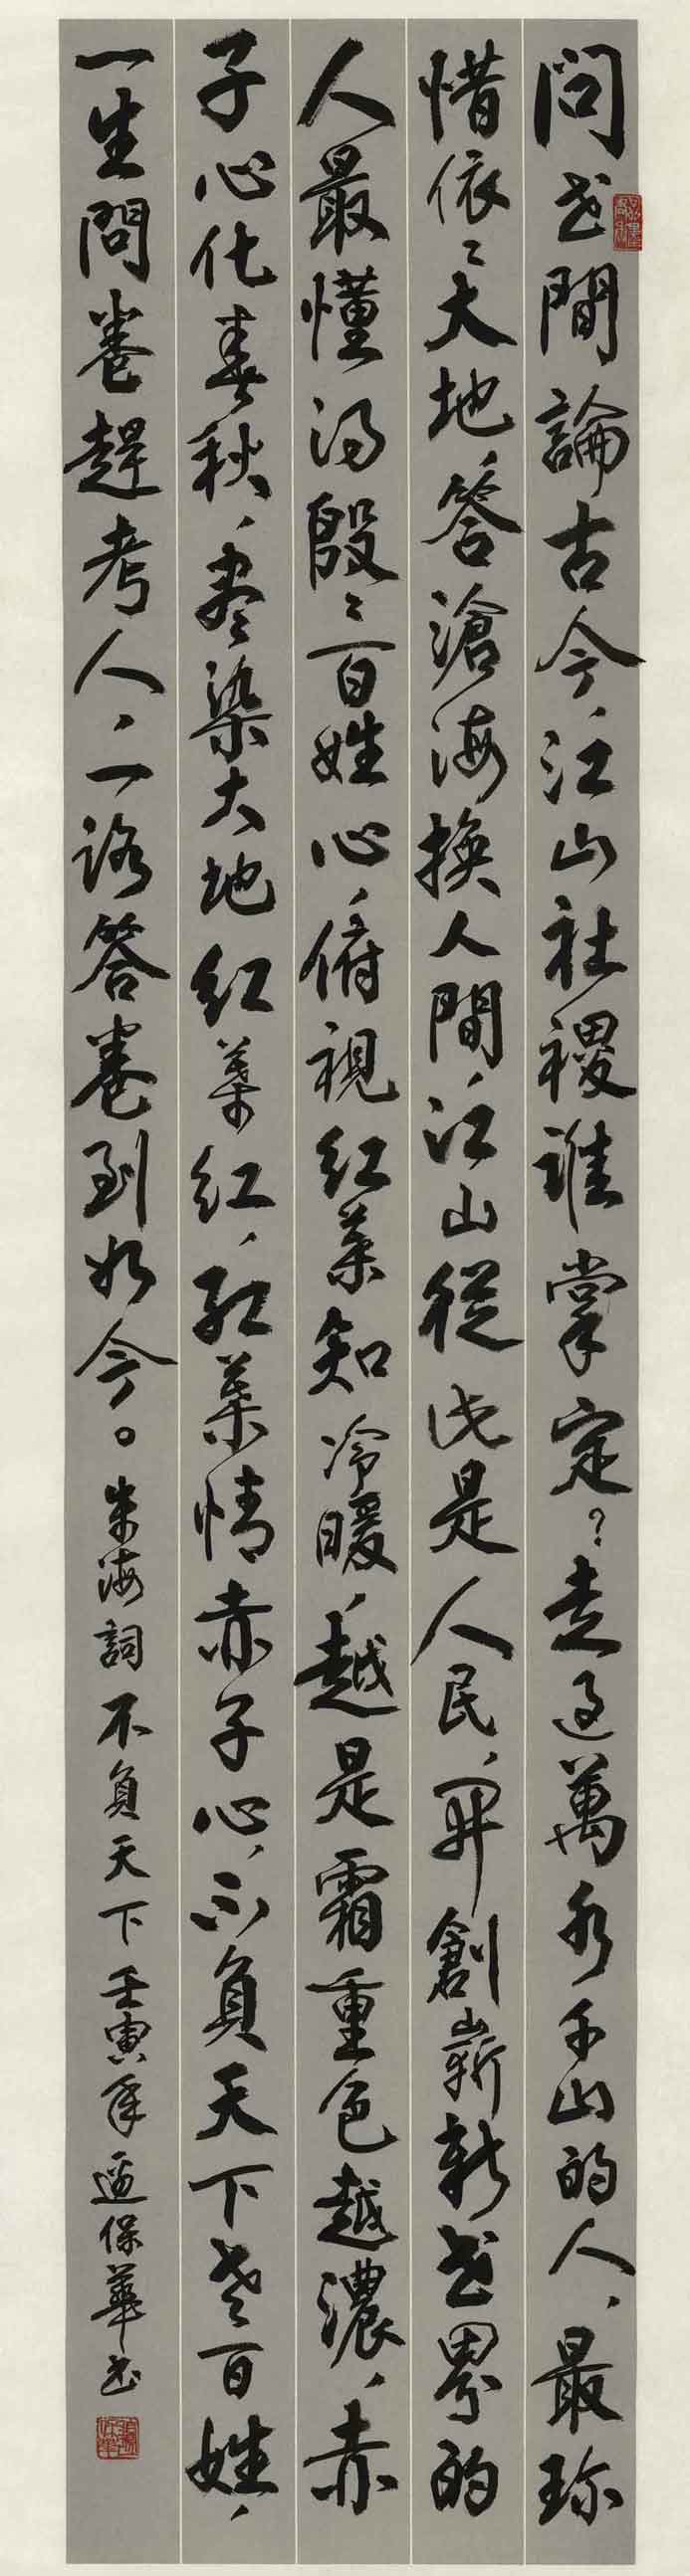 問世間論古今，江山社稷誰掌定？走過萬水千山的人，最珎
惜依依大地，答滄海換人間，江山從此是人民，開創嶄新世界的
人最懂得殷殷百姓心，俯視紅葉知冷暖，越是霜重色越濃，赤
子心化春秋，盡染大地紅葉紅，紅葉情赤子心，不負天下老百姓，
一生問卷趕考人，一路答卷到如今。朱海詞 不負天下 壬寅年 邊保華書